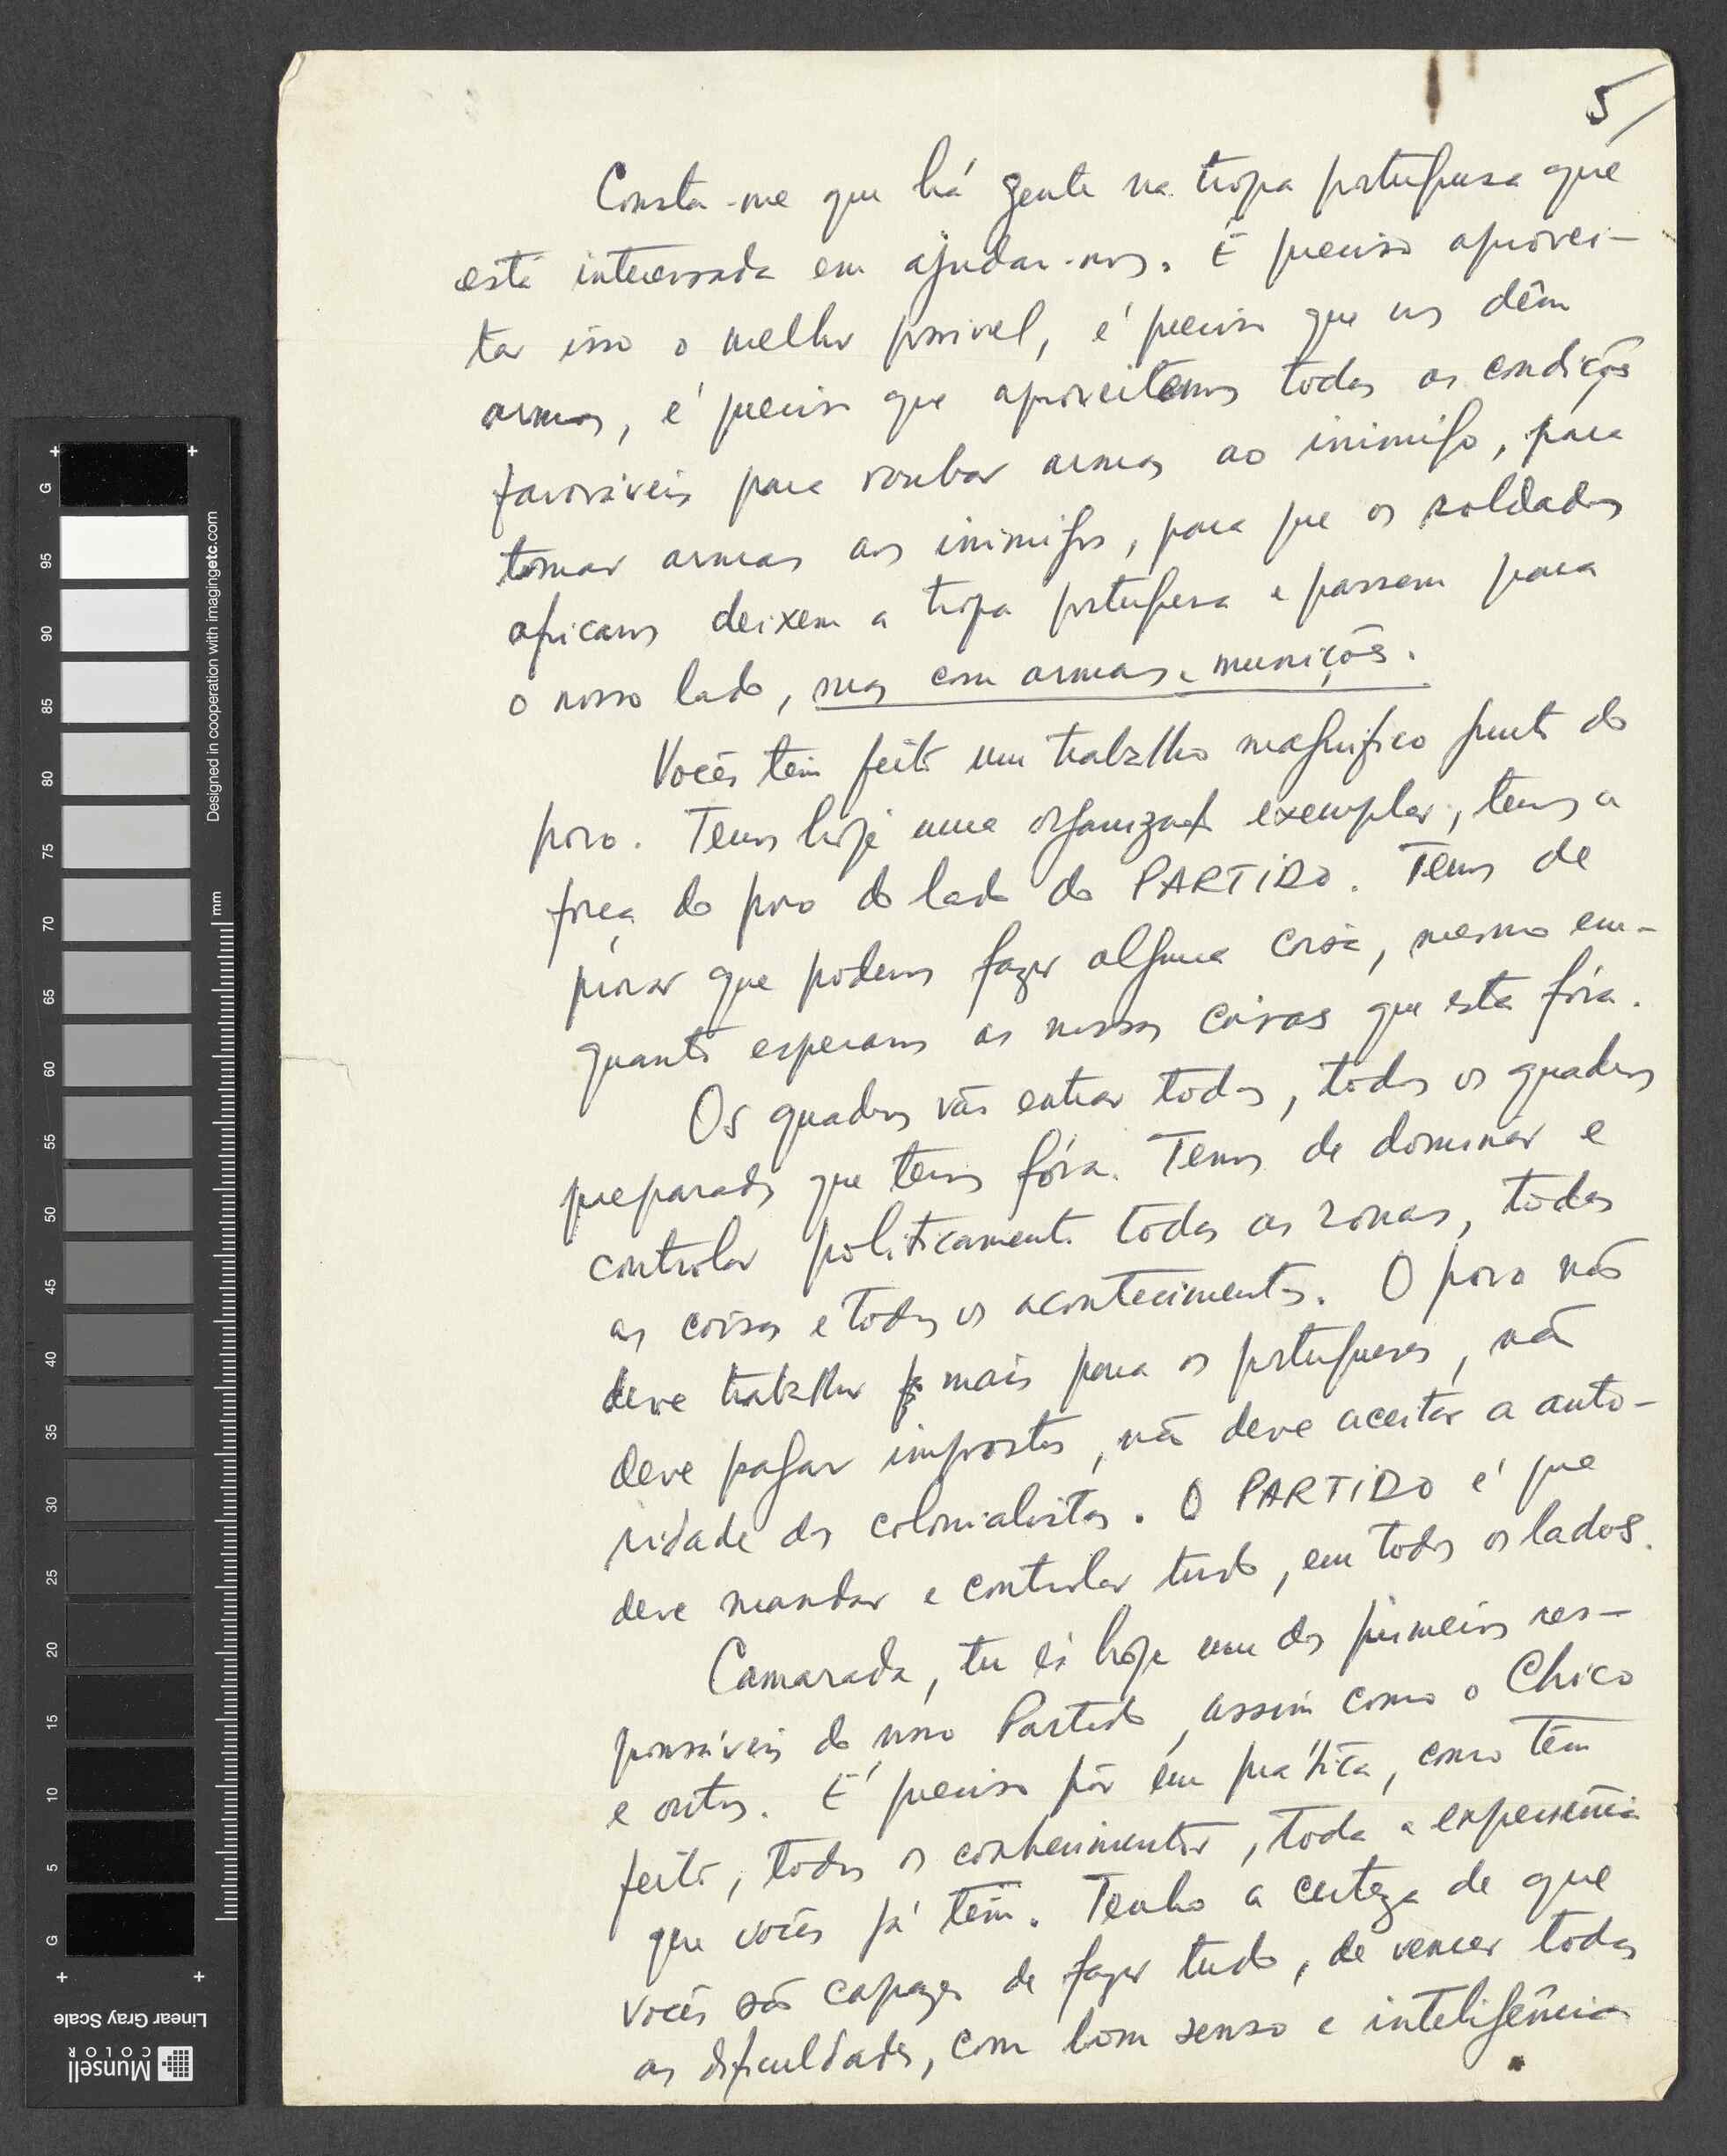 5/
Consta-me que há gente na tropa portuguesa que
está interessada em ajudar-nos. É preciso aprovei-
tar isso o melhor possivel, é preciso que nos dêm
armas, é preciso que aproveitemos todas as condições
favoráveis para roubar armas ao inimigo, para
tomar armas aos inimigos, para que os soldados
africanos deixem a tropa portuguesa e passem para
o nosso lado, mas com armas e munições.
Vocês têm feito um trabalho magnifico junto do
povo. Temos hoje uma organização exemplar, temos a
força do povo do lado do PARTIDO. Temos de
provar que podemos fazer alguma coisa, mesmo em-
quanto esperamos as nossas coisas que esta fóra.
Os quadros vão entrar todos, todos os quadros
preparados que temos fóra. Temos de dominar e
controlar politicamente todas as zonas, todas
as coisas e todos os acontecimentos. O povo não
deve trabalhar mais para os portugueses, não
deve pagar impostos, não deve aceitar a auto-
ridade dos colonialistas. O PARTIDO é que
deve mandar e controlar tudo, em todos os lados.
Camarada, tu és hoje um dos primeiros res-
ponsáveis do nosso Partido, assim como o Chico
e outros. É preciso pôr em prática, como têm
feito, todos os conhecimentos, toda a experiência
que vocês já têm. Tenho a certeza de que
vocês são capazes de fazer tudo, de vencer todas
as dificuldades, com bom senso e inteligência
G
95
90
85
80
75
70
65
60
55
50
45
40
35
30
25
20
15
10
5
G
mm
Designed in cooperation with imagingetc.com
Linear Gray Scale
Munsell
COLOR